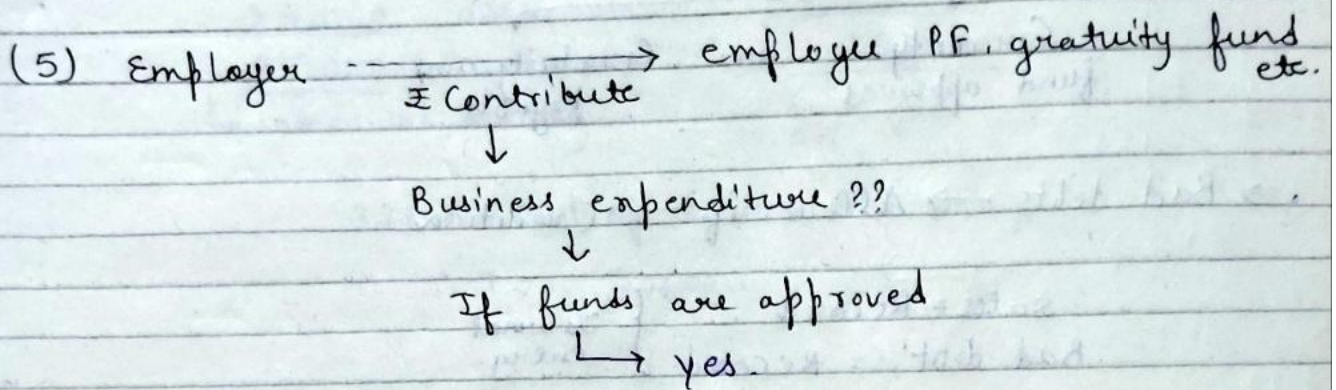 (5) Employer -----→ employee PF, gratuity fund etc.
₹ Contribute
↓
Business expenditure ??
↓
If funds are approved
↳ yes.